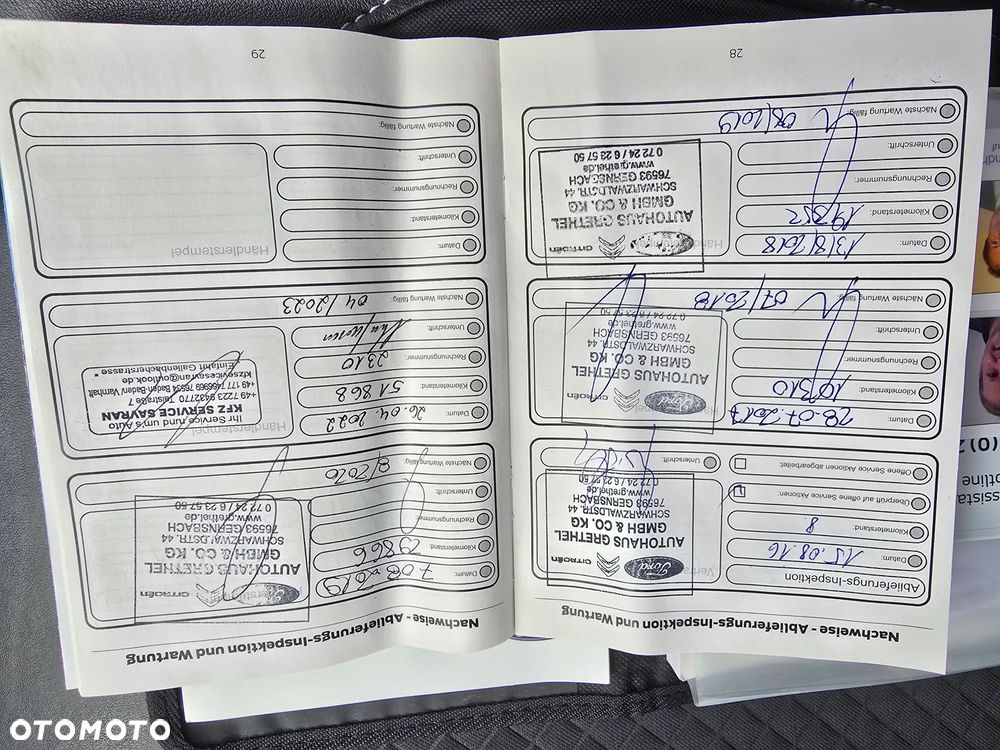 Nachweise - Ablieferungs-Inspektion und Wartung
Ablieferungs-Inspektion
Datum: 15.08.16
Kilometerstand: 8
Überprüft auf offene Service Aktionen:
Offene Service Aktionen abgearbeitet:
Ford CITROËN
AUTOHAUS GRETHEL
GMBH & CO. KG
SCHWARZWALDSTR. 44
76593 GERNSBACH
www.grethel.de
0 72 24 / 6 23 57 50
Unterschrift:
Datum: 28.07.2017
Kilometerstand: 10310
Rechnungsnummer:
Unterschrift:
Nächste Wartung fällig: 07/2018
Händlerstempel
Ford CITROËN
AUTOHAUS GRETHEL
GMBH & CO. KG
SCHWARZWALDSTR. 44
76593 GERNSBACH
www.grethel.de
0 72 24 / 6 23 57 50
Datum: 13/8/2018
Kilometerstand: 19352
Rechnungsnummer:
Unterschrift:
Nächste Wartung fällig: 08/2019
CITROËN
AUTOHAUS GRETHEL
GMBH & CO. KG
SCHWARZWALDSTR. 44
76593 GERNSBACH
www.grethel.de
0 72 24 / 6 23 57 50
28
Nachweise - Ablieferungs-Inspektion und Wartung
Datum:
Kilometerstand:
Rechnungsnummer:
Unterschrift:
Nächste Wartung fällig: 8/2020
Ford CITROËN
AUTOHAUS GRETHEL
GMBH & CO. KG
SCHWARZWALDSTR. 44
76593 GERNSBACH
www.grethel.de
0 72 24 / 6 23 57 50
Datum: 26.04.2022
Kilometerstand: 51868
Rechnungsnummer: 2310
Unterschrift:
Nächste Wartung fällig: 04/2023
Händlerstempel
Ihr Service rund um's Auto
KFZ SERVICE SAVRAN
Talstraße 7
76534 Baden-Baden/ Varnhalt
kfzservicesavran@outlook.de
Einfahrt Gallenbacherstrasse
Datum:
Kilometerstand:
Rechnungsnummer:
Unterschrift:
Nächste Wartung fällig:
Händlerstempel
29
OTOMOTO